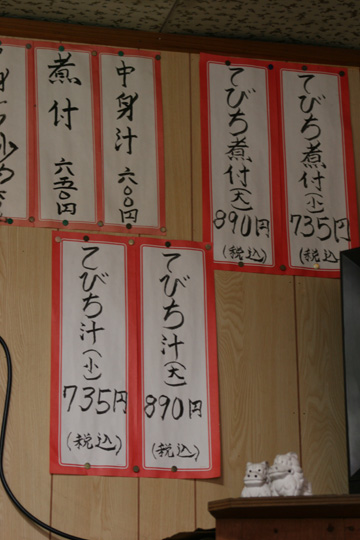 てびち煮付(小)
735円
(税込)
てびち煮付(大)
890円
(税込)
中身汁 六〇〇円
煮付 六五〇円
てびち汁(大)
890円
(税込)
てびち汁(小)
735円
(税込)